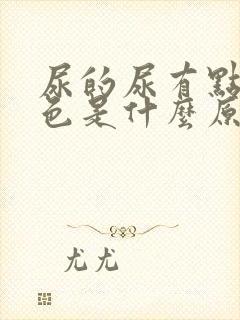 尿的尿有點
色是什麼原
尤尤